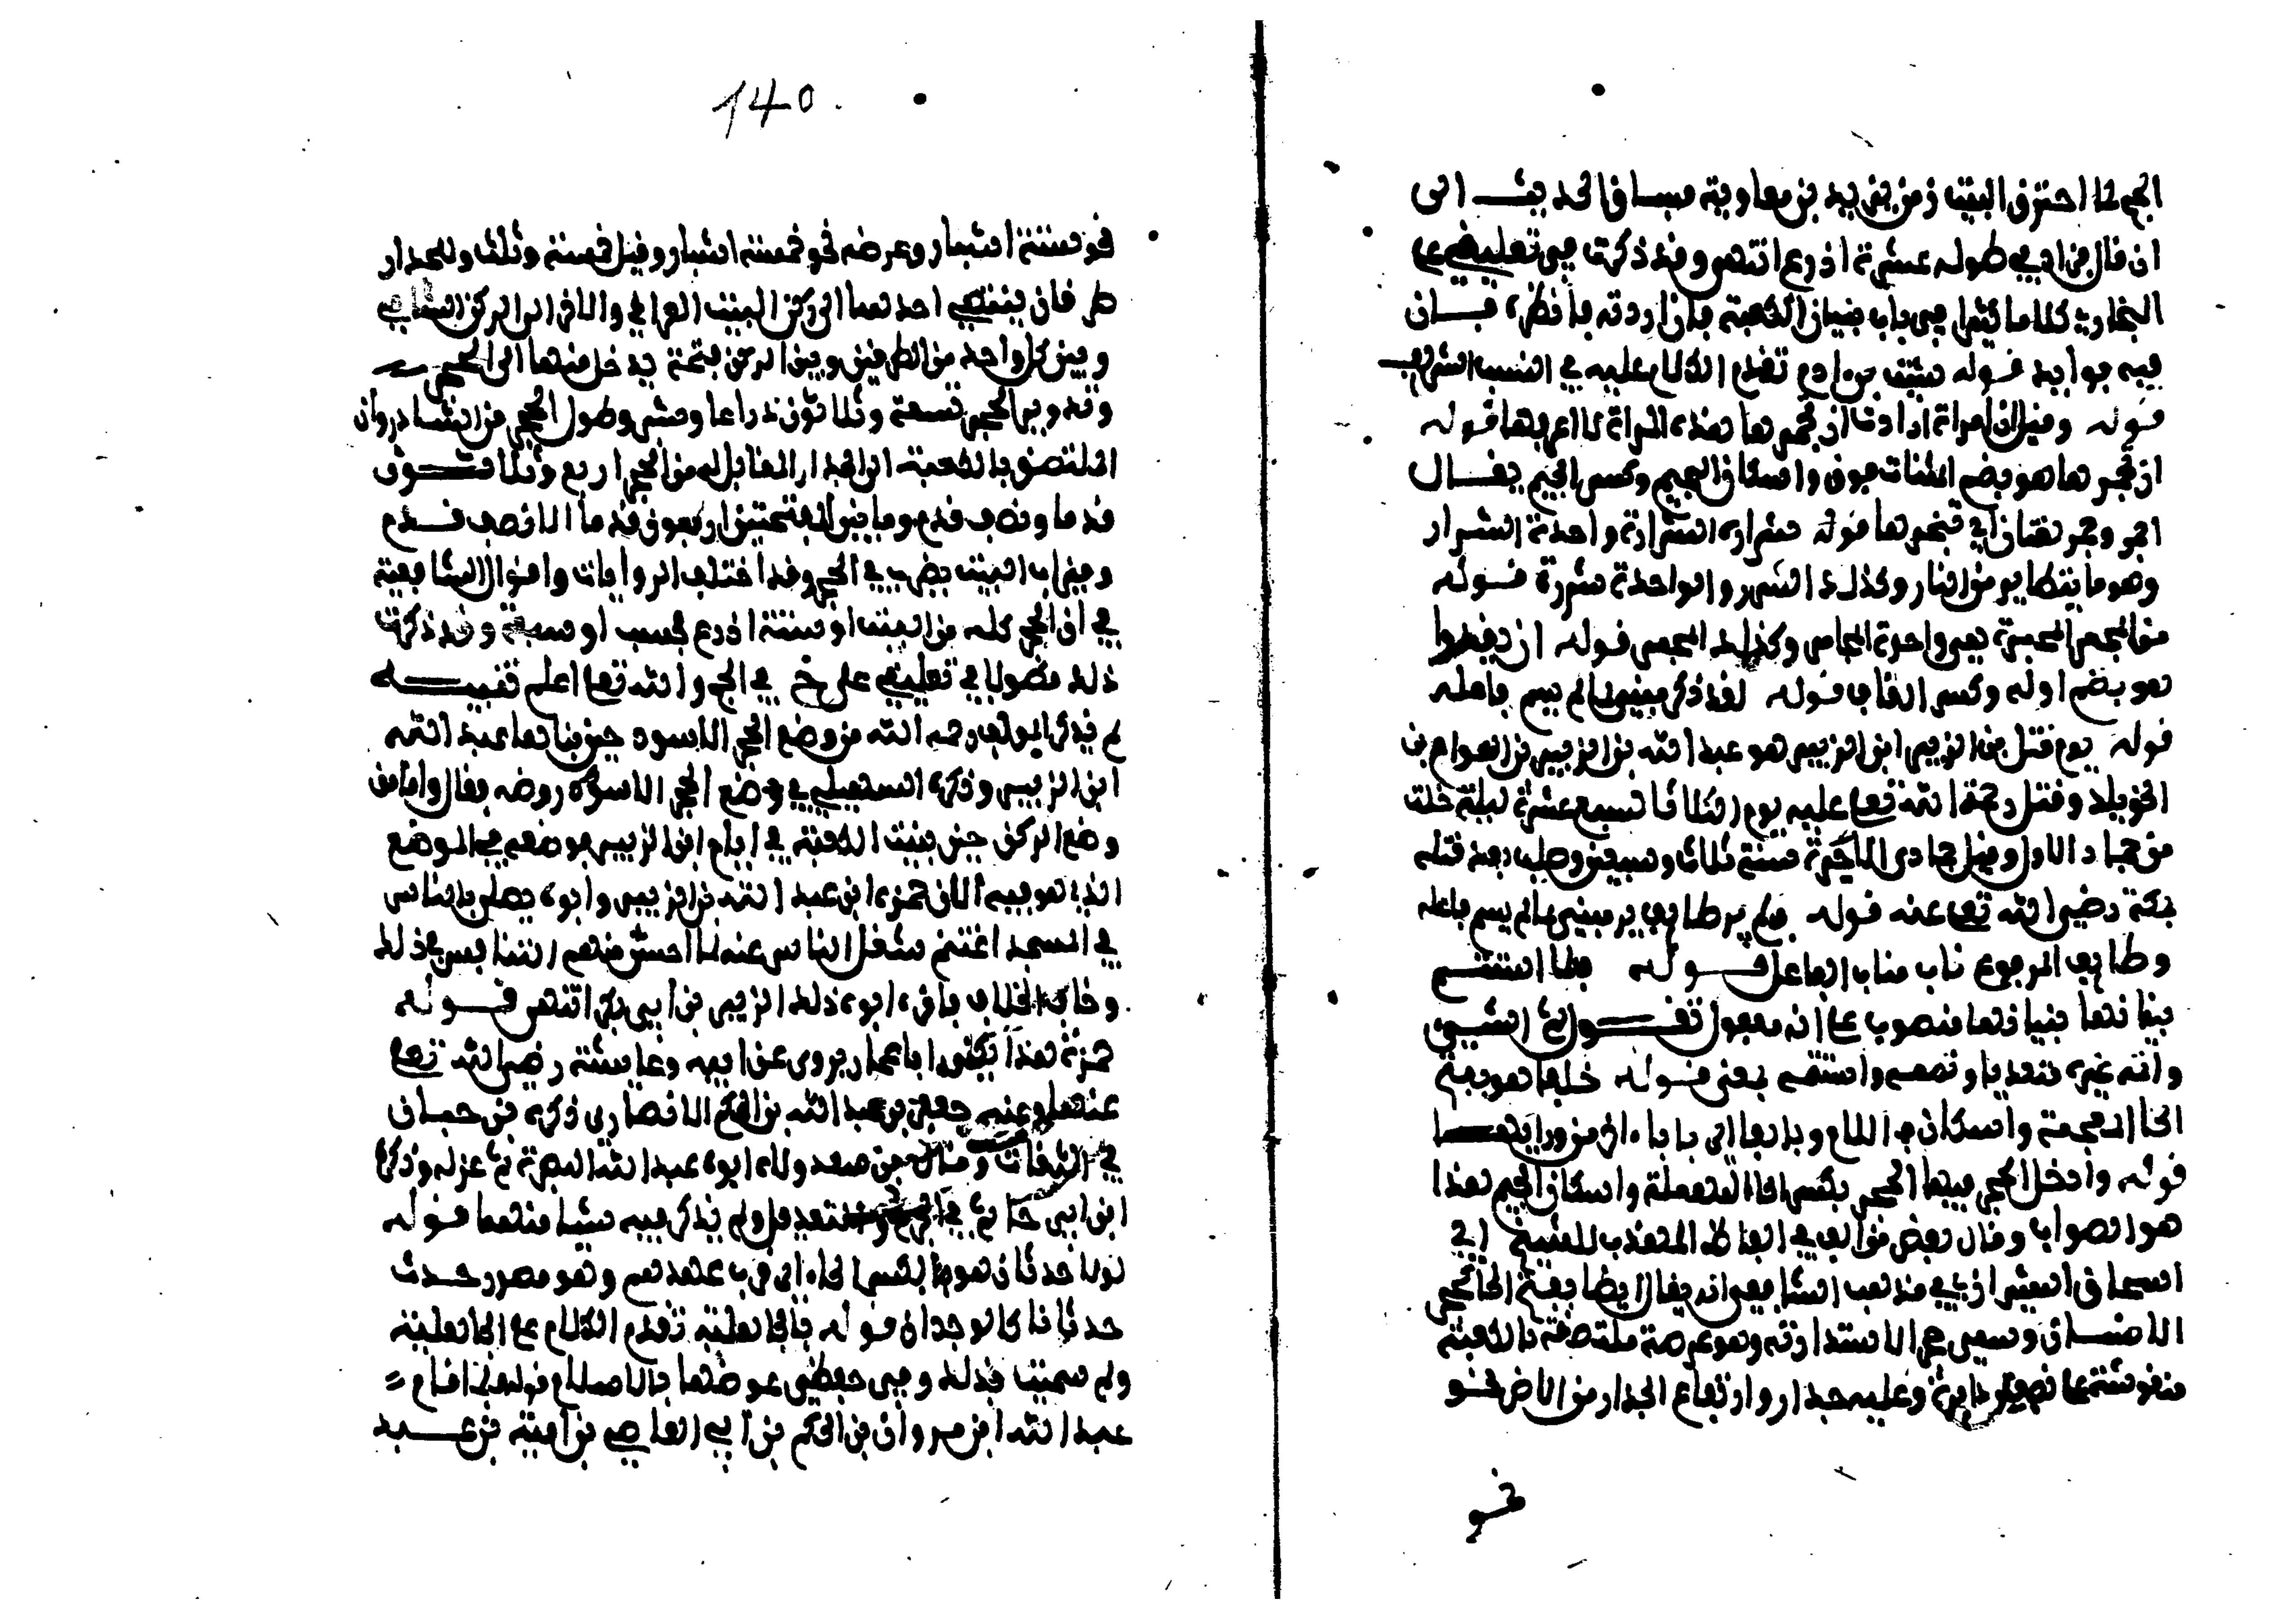 الحج لما احترق البيت زمن يزيد بن معاوية فساق الحديث الى
ان قال فزاد في طوله عشرة اذرع انتهى وقد ذكرت في تعليقي على
البخاري كلاما كثيرا في باب بنيان الكعبة فان اردته فانظره فان
فيه فوايد قوله شيث بن ادم تقدم الكلام عليه في النسب الشريف
قوله وقيل ان امراة ارادت ان تجمرها هذه المراة لا اعرفها قوله
ان تجمرها هو بضم المثناة فوق واسكان الجيم وكسر الميم يقال
اجمر وجمر لغتان اي تبخرها قوله شرارة الشرارة واحدة الشرار
وهو ما يتطاير من النار وكذلك الشرر والواحدة شررة قوله
من المجمر المجمرة هي واحدة المجامر وكذلك المجمر قوله ان
هو بضم اوله وكسر القاف قوله لقد ذكر مبني لما لم يسم فاعله
قوله يوم قتل بن الزبير ابن الزبير هو عبد الله بن الزبير بن العوام بن
الخويلد وقتل رحمة الله تعلى عليه يوم الثلاثا لسبع عشرة ليلة خلت
من جماد الاول وقيل جمادى الاخرة سنة ثلاث وسبعين وصلب بعد قتله
بمكة رضي الله تعلى عنه قوله فلم ير طايف ير مبني لما لم يسم فاعله
وطايف المرفوع ناب مناب الفاعل قوله فلما استتم
بنيانها بنيانها منصوب على انه مفعول تقول تم الشيء
واتمه غيره وتممه واستتمه بمعنى قوله خلفا هو بفتح
الخا المعجمة واسكان اللام وبالفا اي بابا من ورايها
قوله وادخل الحجر فيها الحجر بكسر الحا المهملة واسكان الجيم هذا
هو الصواب وقال بعض من الف في الفاظ المهذب للشيخ ابي
اسحاق الشيرازي في مذهب الشافعي انه يقال ايضا بفتح الحا كحجر
الانسان وسمي حجرا لاستدارته وهو عرصة ملتصقة بالكعبة
منقوشة على نصف دايرة وعليه جدار وارتفاع الجدار من الارض نحو
نحو
140
نحو ستة اشبار وعرضه نحو خمسة اشبار وقيل خمسة وثلث وللجدار
طرفان ينتهي احدهما الى ركن البيت العراقي والاخر الى الركن الشامي
وبين كل واحد من الطرفين وبين الركن فتحة يدخل منها الى الحجر
وتدوير الحجر تسعة وثلاثون ذراعا وشبر وطول الحجر من الشاذروان
الملتصق بالكعبة الى الجدار المقابل له من الحجر اربع وثلاثون
قدما ونصف قدم وما بين الفتحتين اربعون قدما الا نصف قدم
وميزاب البيت يضرب في الحجر وقد اختلف الروايات واقوال الشافعية
في ان الحجر كله من البيت او ستة اذرع فحسب او سبعة وقد ذكرت
ذلك مطولا في تعليقي على خ في الحج والله تعلى اعلم تنبيه
لم يذكر المولف رحمه الله من وضع الحجر الاسود حين بناها عبد الله
ابن الزبير وذكره السهيلي في وضع الحجر الاسود روضه فقال واما من
وضع الركن حين بنيت الكعبة في ايام ابن الزبير فوضعه في الموضع
الذي هو فيه الان حمزة ابن عبد الله بن الزبير وابوه يصلي بالناس
في المسجد اغتنم شغل الناس عنه لما احس منهم التنافس في ذلك
وخاف الخلاف فاقره ابوه ذلك الزبير بن ابي بكر انتهى قوله
حمزة هذا يكنى ابا عمار يروى عن ابيه وعايشة رضي الله تعلى
عنهما وعنه جعفر بن عبد الله بن الحكم الانصاري ذكره بن حبان
في الثقات وقال بن سعد ولاه ابوه عبد الله البصرة ثم عزله وذكره
ابن ابي حاتم في الجرح والتعديل ولم يذكر فيه شيا منهما قوله
لولا حدثان هو بكسر الحاء اي قرب عهدهم وهو مصدر حدث
حدثانا كالوجدان قوله بالجاهلية تقدم الكلام على الجاهلية
ولم سميت بذلك وفي حفظي عوضها بالاسلام قوله فلما قام
عبد الملك ابن مروان بن الحكم بن ابي العاصي بن امية بن عبد